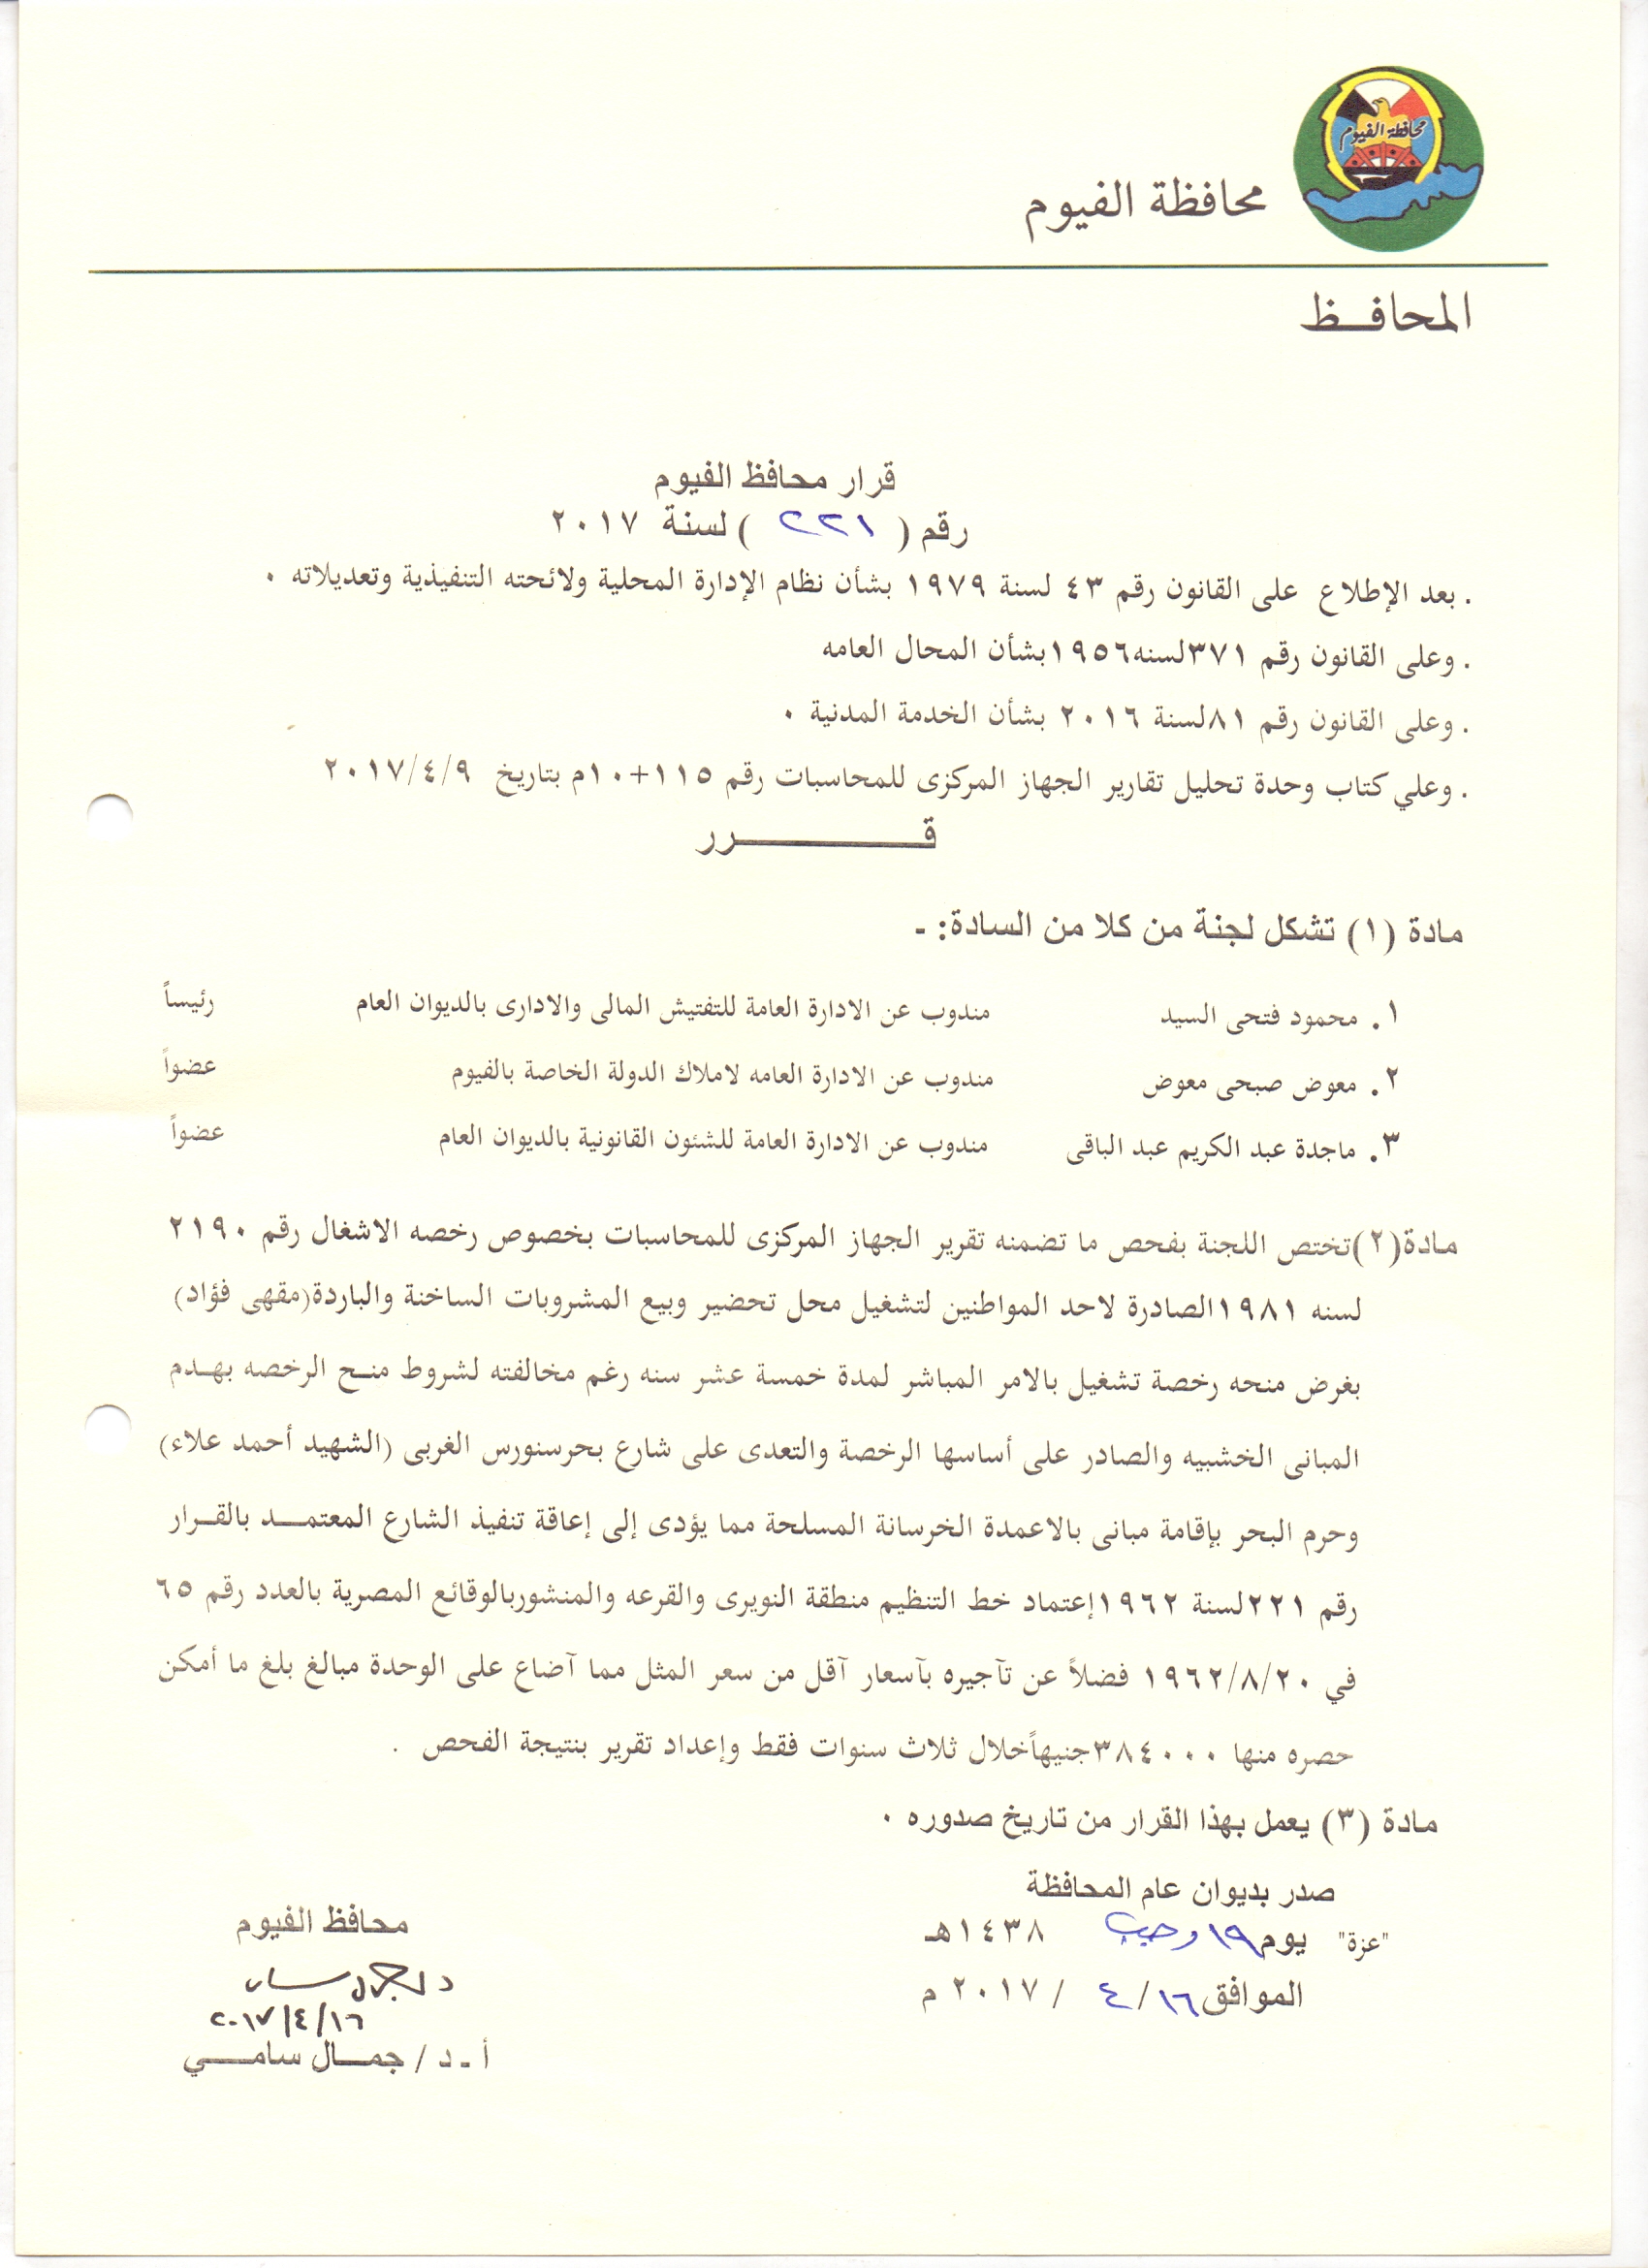 محافظة الفيوم
محافظة الفيوم
المحافـــظ
قرار محافظ الفيوم
رقم ( ٢٢١ ) لسنة ٢٠١٧
. بعد الإطلاع على القانون رقم ٤٣ لسنة ١٩٧٩ بشأن نظام الإدارة المحلية ولائحته التنفيذية وتعديلاته ٠
. وعلى القانون رقم ٣٧١لسنه١٩٥٦بشأن المحال العامه
. وعلى القانون رقم ٨١لسنة ٢٠١٦ بشأن الخدمة المدنية ٠
. وعلي كتاب وحدة تحليل تقارير الجهاز المركزى للمحاسبات رقم ١١٥+١٠م بتاريخ ٢٠١٧/٤/٩
قـــــــــــرر
مادة (١) تشكل لجنة من كلا من السادة: -
١. محمود فتحى السيد مندوب عن الادارة العامة للتفتيش المالى والادارى بالديوان العام رئيساً
٢. معوض صبحى معوض مندوب عن الادارة العامه لاملاك الدولة الخاصة بالفيوم عضواً
٣. ماجدة عبد الكريم عبد الباقى مندوب عن الادارة العامة للشئون القانونية بالديوان العام عضواً
مادة(٢)تختص اللجنة بفحص ما تضمنه تقرير الجهاز المركزى للمحاسبات بخصوص رخصه الاشغال رقم ٢١٩٠
لسنه ١٩٨١الصادرة لاحد المواطنين لتشغيل محل تحضير وبيع المشروبات الساخنة والباردة(مقهى فؤاد)
بغرض منحه رخصة تشغيل بالامر المباشر لمدة خمسة عشر سنه رغم مخالفته لشروط منـح الرخصه بهـدم
المبانى الخشبيه والصادر على أساسها الرخصة والتعدى على شارع بحرسنورس الغربى (الشهيد أحمد علاء)
وحرم البحر بإقامة مبانى بالاعمدة الخرسانة المسلحة مما يؤدى إلى إعاقة تنفيذ الشارع المعتمـــد بالقـرار
رقم ٢٢١لسنة ١٩٦٢إعتماد خط التنظيم منطقة النويرى والقرعه والمنشوربالوقائع المصرية بالعدد رقم ٦٥
في ١٩٦٢/٨/٢٠ فضلاً عن تآجيره بآسعار آقل من سعر المثل مما آضاع على الوحدة مبالغ بلغ ما أمكن
حصره منها ٣٨٤٠٠٠جنيهاًخلال ثلاث سنوات فقط وإعداد تقرير بنتيجة الفحص .
مادة (٣) يعمل بهذا القرار من تاريخ صدوره ٠
صدر بديوان عام المحافظة
"عزة" يوم١٩ رجب ١٤٣٨هـ
الموافق١٦/ ٤ / ٢٠١٧ م
محافظ الفيوم
٢٠١٧/٤/١٦
أ - د / جمـــال سامـــــي